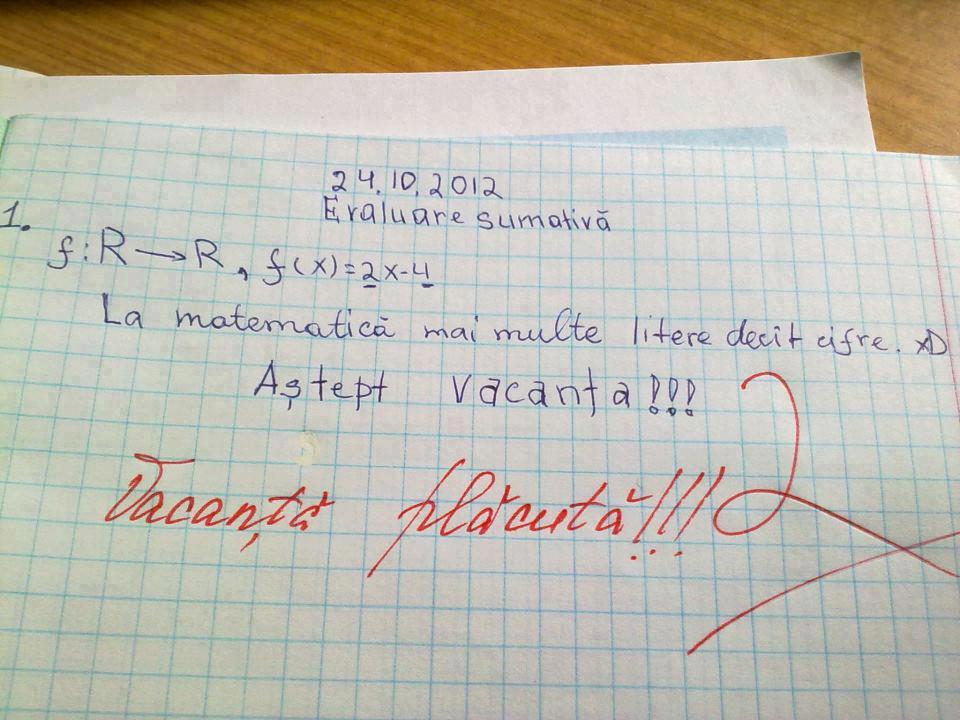 24.10.2012
Evaluare sumativă
1.
f:R→R, f(x)=2x-4
La matematică mai multe litere decit cifre. xD
Aștept vacanța!!!
Vacanță plăcută!!! 2